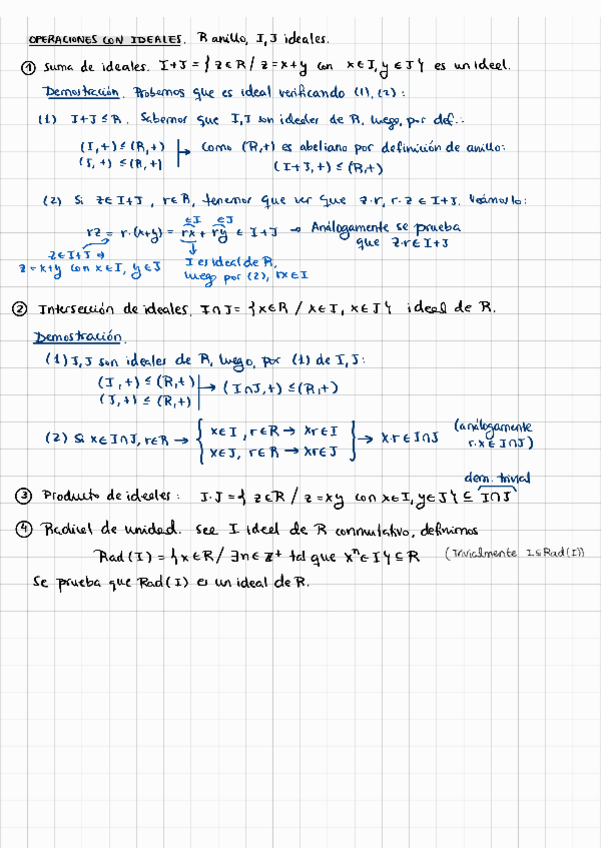 OPERACIONES CON IDEALES. R anillo, I, J ideales.
① Suma de ideales. I+J = { z∈R / z=x+y con x∈I, y∈J } es un ideal.
Demostración. Probemos que es ideal verificando (1), (2):
(1) I+J ≤ R. Sabemos que I, J son ideales de R, luego, por def.:
(I,+) ≤ (R,+)
(J,+) ≤ (R,+)
→ Como (R,+) es abeliano por definición de anillo:
(I+J,+) ≤ (R,+)
(2) Si z∈I+J, r∈R, tenemos que ver que z·r, r·z ∈ I+J. Veámoslo:
∈I ∈J
rz = r·(x+y) = rx + ry ∈ I+J → Análogamente se prueba
que z·r∈I+J
z∈I+J ⇒
z=x+y con x∈I, y∈J
I es ideal de R,
luego por (2), rx∈I
② Intersección de ideales. I∩J = { x∈R / x∈I, x∈J } ideal de R.
Demostración.
(1) I, J son ideales de R, luego, por (1) de I, J:
(I,+) ≤ (R,+)
(J,+) ≤ (R,+)
→ (I∩J,+) ≤ (R,+)
(2) Si x∈I∩J, r∈R → { x∈I, r∈R → xr∈I
x∈J, r∈R → xr∈J } → x·r∈I∩J
(análogamente
r·x∈I∩J)
dem. trivial
③ Producto de ideales: I·J = { z∈R / z=xy con x∈I, y∈J } ⊆ I∩J
④ Radical de unidad. See I ideal de R conmutativo, definimos
Rad(I) = { x∈R / ∃n∈Z⁺ tal que xⁿ∈I } ⊆ R (Trivialmente I⊆Rad(I))
Se prueba que Rad(I) es un ideal de R.